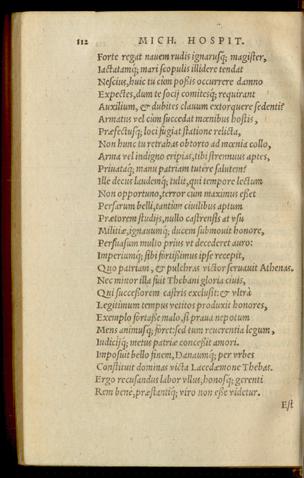 112 MICH. HOSPIT.
Forte regat nauem rudis ignarusq; magister,
Iactatamq; mari scopulis illidere tendat
Nescius, huic tu cùm possis occurrere damno
Expectes, dum te socij comitesq; requirant
Auxilium, & dubites clauum extorquere sedenti?
Armatus vel cùm succedat mœnibus hostis,
Præfectusq; loci fugiat statione relicta,
Non hunc tu retrahas obtorto ad mœnia collo,
Arma vel indigno eripias, tibi strenuus aptes,
Priuataq; manu patriam tutere salutem?
Ille decus laudemq; tulit, qui tempore lectum
Non opportuno, terror cùm maximus esset
Persarum belli, tantùm ciuilibus aptum
Prætorem studijs, nullo castrensis at vsu
Militiæ, ignauumq; ducem submouit honore,
Persuasum multo prius vt decederet auro:
Imperiumq; sibi fortissimus ipse recepit,
Quo patriam, & pulchras victor seruauit Athenas.
Nec minor illa fuit Thebani gloria ciuis,
Qui successorem castris exclusit: & vltrà
Legitimum tempus vetitos produxit honores,
Exemplo fortasse malo, si praua nepotum
Mens animusq; foret: sed tum reuerentia legum,
Iudicijq; metus patriæ concessit amori.
Imposuit bello finem, Danaumq; per vrbes
Constituit dominas victa Lacedæmone Thebas.
Ergo recusandus labor vllus, honosq; gerenti
Rem bene, præstantiq; viro non esse videtur.
Est